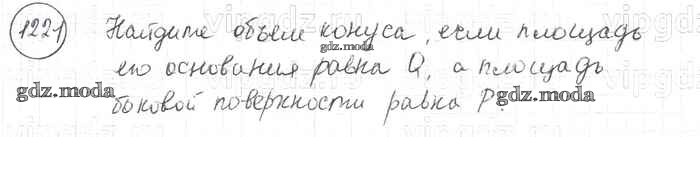 1221 Найдите объем конуса, если площадь
его основания равна Q, а площадь
боковой поверхности равна P.
gdz.moda
gdz.moda
gdz.moda